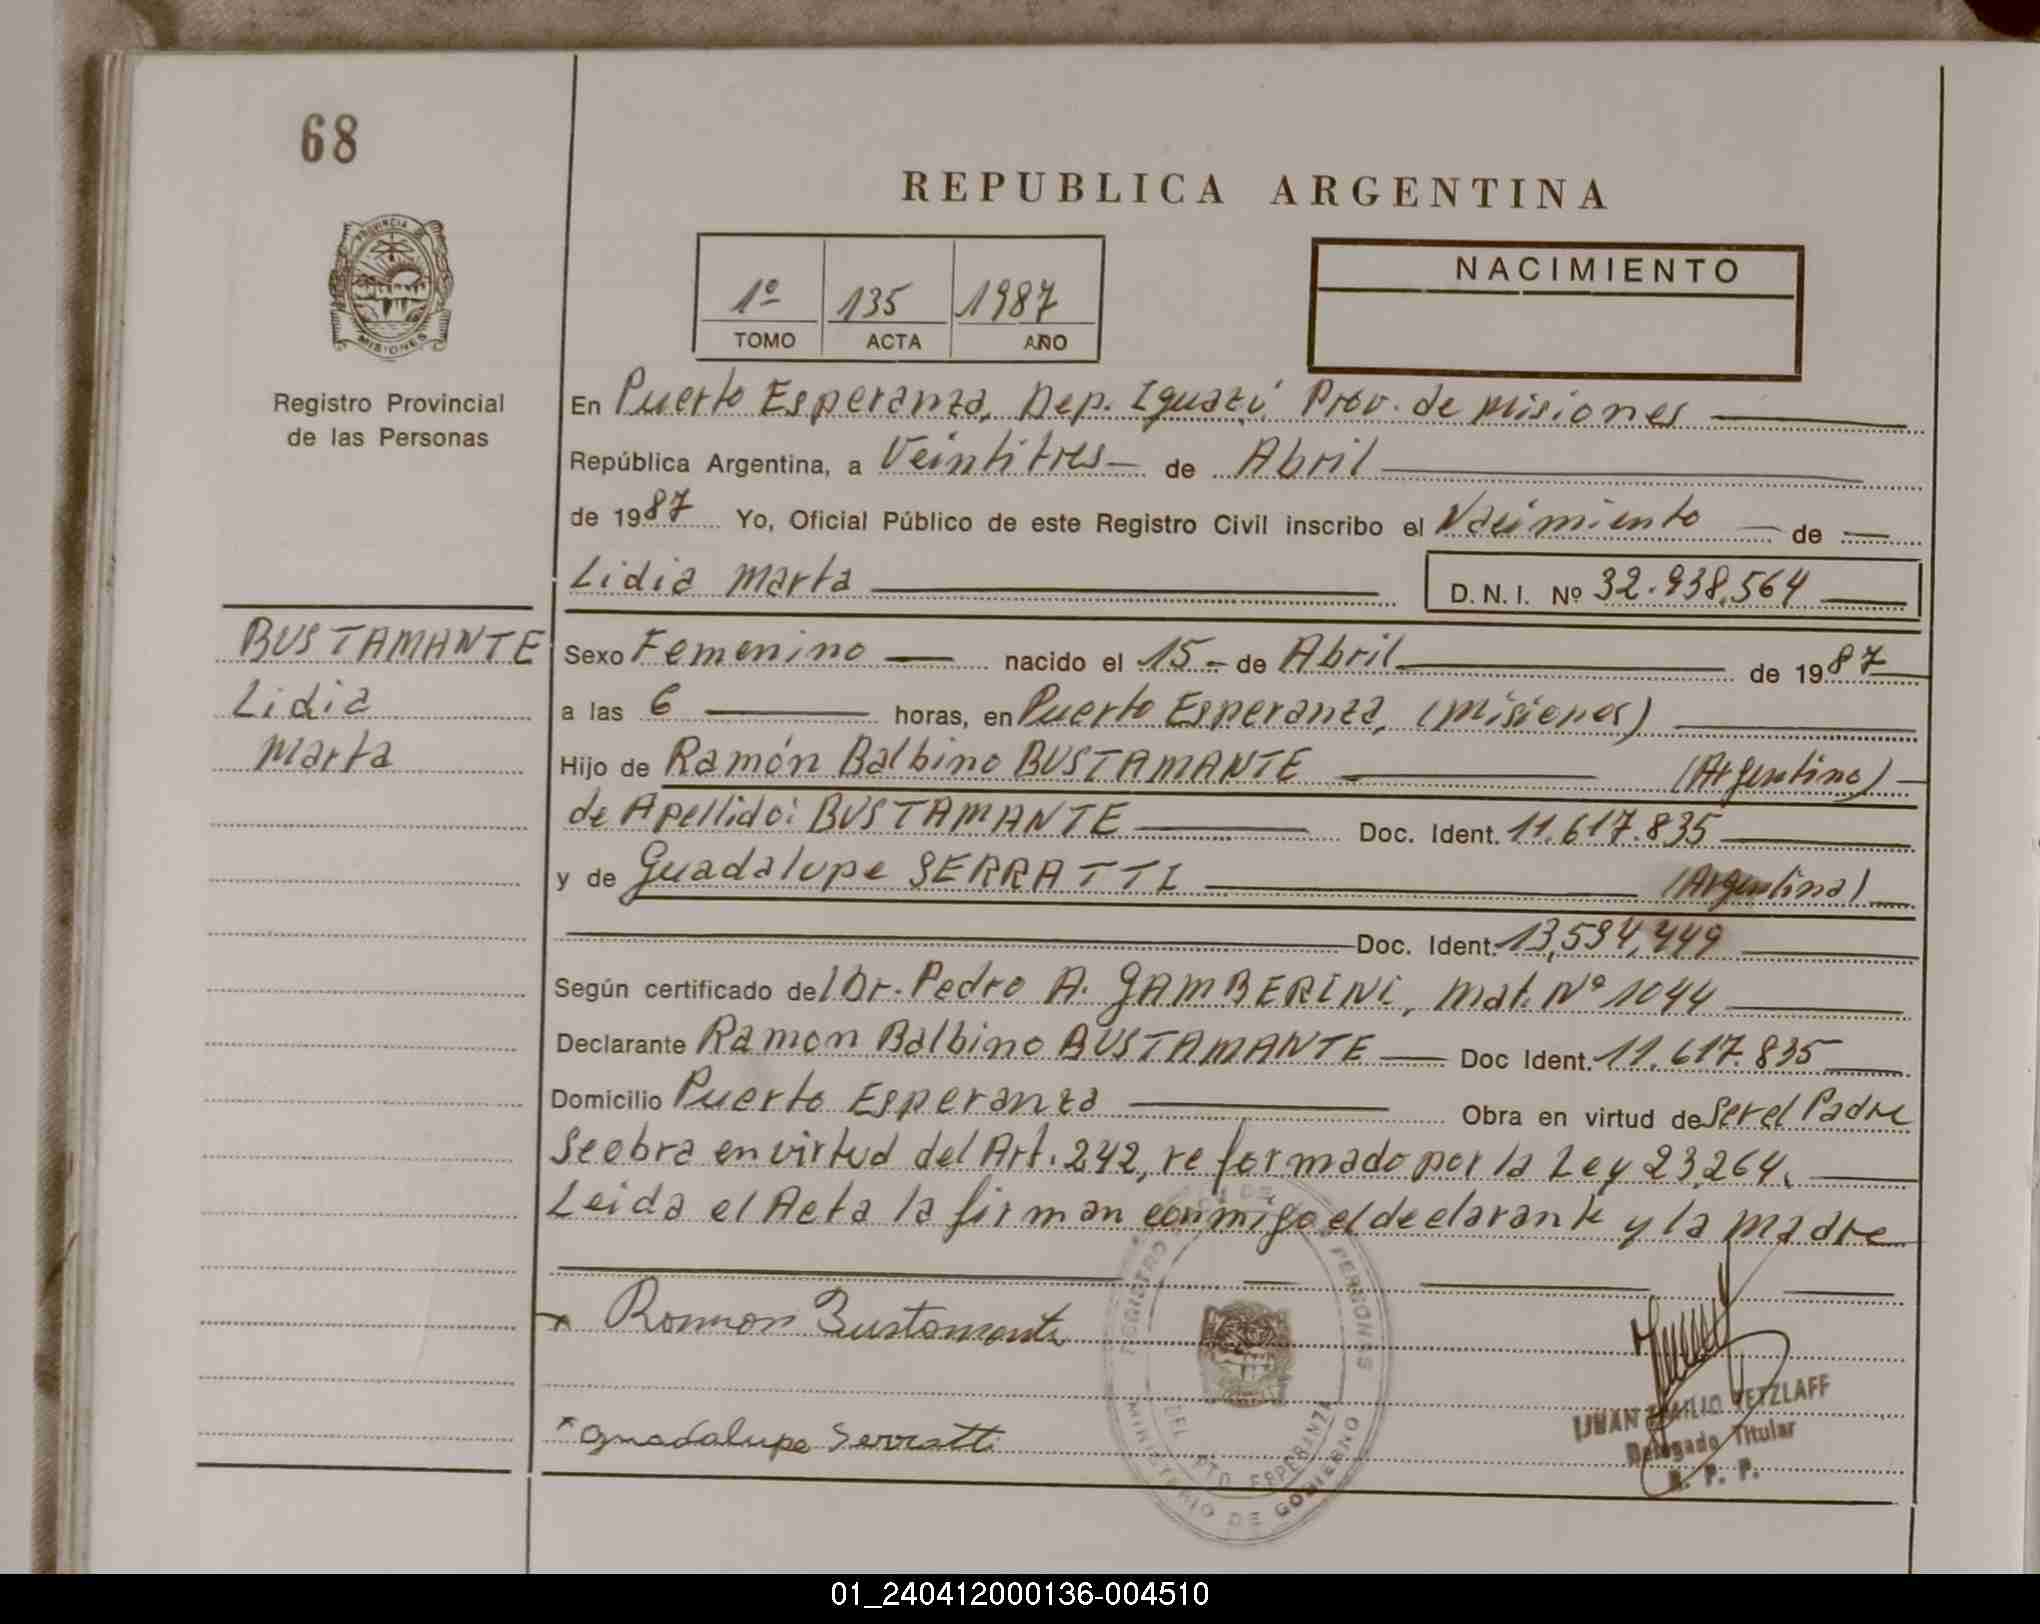 68
REPUBLICA ARGENTINA
PROVINCIA DE
MISIONES
Registro Provincial
de las Personas
1º 135 1987
TOMO ACTA AÑO
NACIMIENTO
En Puerto Esperanza, Dep. Iguazú Prov. de Misiones
República Argentina, a Veintitres de Abril
de 1987 Yo, Oficial Público de este Registro Civil inscribo el Nacimiento de
Lidia Marta D.N.I. Nº 32.938.564
BUSTAMANTE
Lidia
Marta
Sexo Femenino nacido el 15 de Abril de 1987
a las 6 horas, en Puerto Esperanza, (Misiones)
Hijo de Ramón Balbino BUSTAMANTE (Argentino)
de Apellido: BUSTAMANTE Doc. Ident. 11.617.835
y de Guadalupe SERRATTI (Argentina)
Doc. Ident. 13,594,449
Según certificado del Dr. Pedro A. GAMBERINI, Mat. Nº 1044
Declarante Ramon Balbino BUSTAMANTE Doc Ident. 11.617.835
Domicilio Puerto Esperanza Obra en virtud de Ser el Padre
Se obra en virtud del Art. 242, reformado por la Ley 23,264.
Leida el Acta la firman conmigo el declarante y la madre
Ramon Bustamante
Guadalupe Serratti
REGISTRO DE PERSONAS
DEL PTO ESPERANZA
MINISTERIO DE GOBIERNO
JUAN EMILIO TETZLAFF
Delegado Titular
R. P. P.
01_240412000136-004510